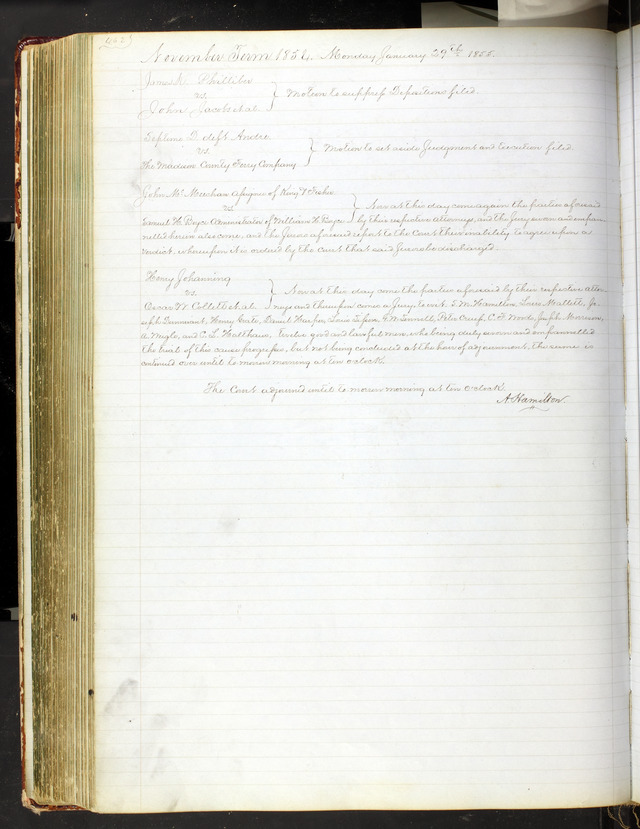 November Term 1854. Monday January 29th 1855.
James M. Phillibr
vs.
John Jacobs et al.
Motion to suppress Depositions filed.
vs.
The Madison County Ferry Company
Motion to set aside Judgment and Execution filed.
John Mc Meehan assignee of King & Fisher
vs
Samuel H. Boyce Administrator of William H. Boyce
Now at this day come again the parties aforesaid
by their respective attorneys, and the Jury sworn and empan-
nelled herein also come, and the Jurors aforesaid report to the Court their inability to agree upon a
verdict, whereupon it is ordered by the Court that said Jurors be discharged.
Henry Johanning
vs.
Oscar W. Collett et al.
Now at this day come the parties aforesaid by their respective attor-
neys and thereupon comes a Jury, to wit: E. M. Hamilton, Louis Mallett, Jo-
seph Henry Daniel Harper, Louis Peter C. F. Woods, Joseph Morrison,
and C. L. twelve good and lawful men, who being duly sworn and empannelled
the trial of this cause progresses, but not being concluded at the hour of adjournment, the same is
continued over until to morrow morning at ten o'clock.
The Court adjourned until to morrow morning at ten o'clock.
A. Hamilton.